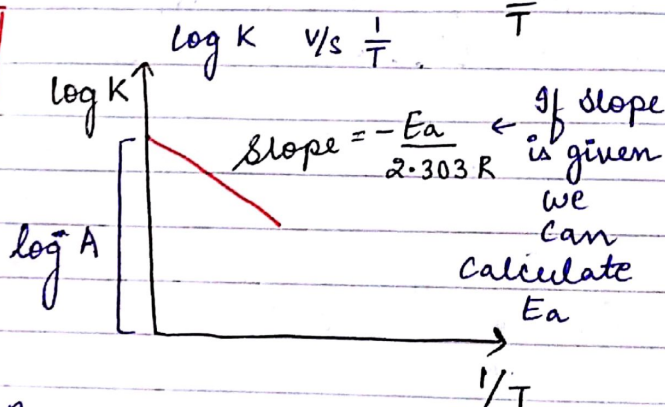 T
log K v/s 1/T.
log K
Slope = -Ea/2.303 R ← If slope
is given
we
can
calculate
Ea
log A
1/T